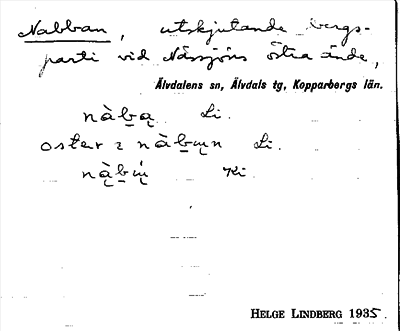 Nabban, utskjutande bergs-
parti vid Nässjöns östra ände,
Älvdalens sn, Älvdals tg, Kopparbergs län.
nàb̲ą Li.
oster i nàb̲ųn Li.
ną̀b̲ų́ Ki
HELGE LINDBERG 1935.